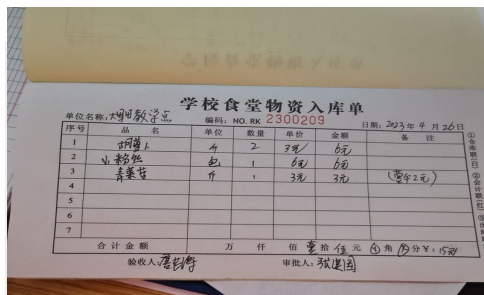 学校食堂物资入库单
单位名称: 教学点 编码: NO. RK 2300209 日期: 2023年4月26日
序号 品名 单位 数量 单价 金额 备注
1 胡萝卜 斤 2 3元 6元
2 小粉丝 包 1 6元 6元
3 青菜苔 斤 1 3元 3元
4
5
6
7
合计金额 万 仟 佰 壹拾伍元 角 分 ¥: 15元
验收人: 审批人: